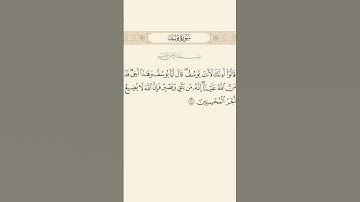 سورة يوسف
قَالُوٓا۟ أَءِنَّكَ لَأَنتَ يُوسُفُ ۖ قَالَ أَنَا۠ يُوسُفُ وَهَٰذَآ أَخِى ۖ قَدْ
مَنَّ ٱللَّهُ عَلَيْنَآ ۖ إِنَّهُۥ مَن يَتَّقِ وَيَصْبِرْ فَإِنَّ ٱللَّهَ لَا يُضِيعُ
أَجْرَ ٱلْمُحْسِنِينَ